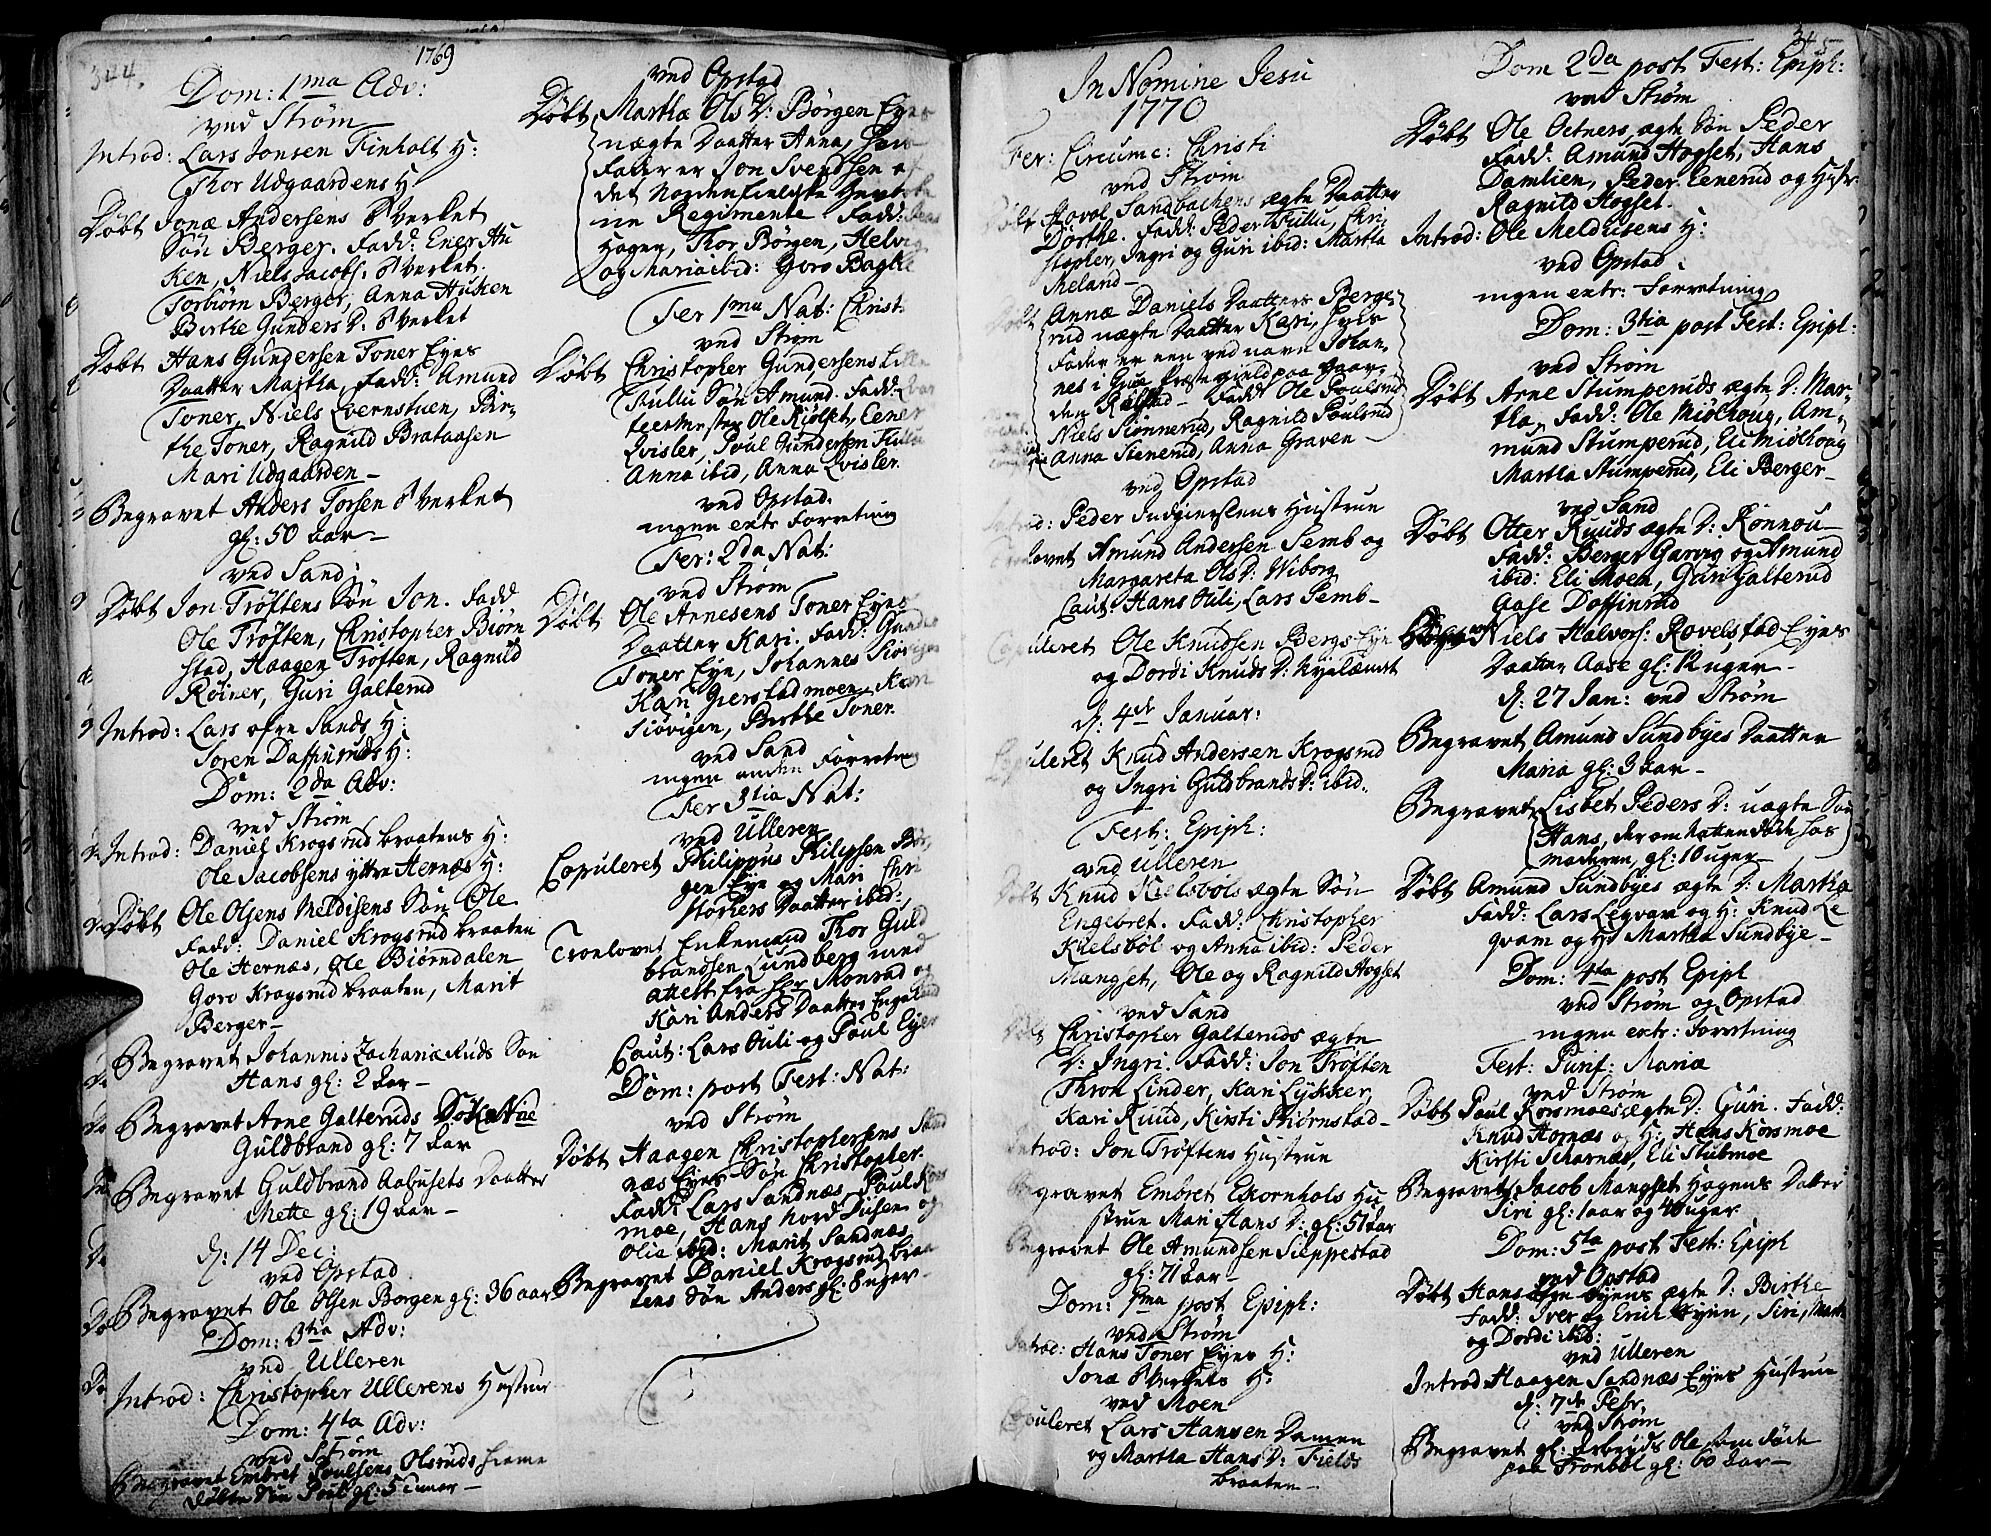 344.
1769
Dom: 1ma Adv:
ved Strøm
Introd: Lars Jonsen Finholt H:
Thor Udgaardens H
Døbt Jonæ Andersens Verket
Søn Berger. Fadd: Ener Au
ken, Niels Jacobs. Verket
Torbiørn Berger, Anna Auken
Berthe Gunders D: Verket
Døbt Hans Gundersen Toner Eyes
Daatter Martha, Fadd: Amund
Toner, Niels Evernstuen, Bir-
the Toner, Ragnild Brataasen
Mari Udgaarden
Begravet Anders Torsen Verket
gl: 50 aar
ved Sand
Døbt Jon Trøftens Søn Jon. Fadd
Ole Trøften, Christopher Biørn
stad, Haagen Trøften, Ragnild
Røiner, Guri Galterud
Introd: Lars ofre Sands H:
Soren Daffinruds H:
Dom: 2da Adv:
ved Strøm
Introd: Daniel Krogsrud braatens H:
Ole Jacobsens yttre Hernæs H:
Døbt Ole Olsens Meldisens Søn Ole
Fadd: Daniel Krogsrud braaten
Ole Hernæs, Ole Biørndalen
Goro Krogsrud braaten, Marit
Berger
Begravet Johannis Zachariæ Ruds Søn
Hans gl: 2 aar
Begravet Arne Galteruds
Guldbrand gl: 7 aar
Begravet Guldbrand Aabusets Daatter
Mette gl: 19 aar
d: 14 Dec:
ved Opstad
Begravet Ole Olsen Borgen gl: 36 aar
Dom: 3tia Adv:
ved Ulleren
Introd: Christopher Ullerens Hustrue
Dom: 4ta Adv:
ved Strøm
Begravet Embret Poulsens Olsruds hieme
døbte Søn Poul gl: 5
ved Opstad
Døbt Martha Ols D: Børgen Eyes
uægte Daatter Anna,
Fader er Jon Svendsen af
det Nordenfieldske
ne Regimente. Fadd:
Hagen, Thor Børgen, Helvig
og Maria ibid: Goro
Fer 1ma Nat: Christ:
ved Strøm
Døbt Christopher Gundersens Lille
Fullu Søn Amund. Fadd:
teermester Ole Kiølset, Eener
Qvisler, Poul Gundersen Fullu
Anna ibid, Anna Qvisler.
ved Opstad.
ingen extr Forretning
Fer: 2da Nat:
ved Strøm
Døbt Ole Arnesens Toner Eyes
Daatter Kari. Fadd: Gunder
Toner Eye, Johannes Siøvigen
Kari Gierstadmoen, Kari
Siøvigen, Berthe Toner.
ved Sand
ingen anden Forretning
Fer 3tia Nat:
ved Ulleren
Copuleret Philippus Philipsen Bør-
gen Eye og Mari Chri
stophers Daatter ibid:
Troelovet Enkemand Thor Guld
brandsen Lundberg med
attest fra Hr Monrad og
Kari Anders Daatter
Caut: Lars Ouli og Poul Eye
Dom: post Fest: Nat:
ved Strøm
Døbt Haagen Christophersens Sand
næs Eyes Søn Christopher
Fadd Lars Sandnæs, Poul
moe, Hans nord Dusen og
Olia ibid: Marit Sandnæs
Begravet Daniel Krogsrud braa
tens Søn Anders gl: 8 uger
345
In Nomine Jesu
1770
Fer: Circumc: Christi
ved Strøm
Døbt Hovol Sandbachens ægte Daatter
Dorthe. Fadd: Peder Fullu, Chri
stopher, Ingri og Guri ibid: Martha
Meland
Døbt Annæ Daniels Daatters Berge
rud uægte Daatter Kari, hvis
Fader er een ved navn Johan-
nes i Gua Præstegield paa Gaar-
den Fadd: Ole Poulsrud
Niels Siønnerud, Ragnild Poulsrud
Anna Stenerud, Anna Graven
ved Opstad
Introd: Peder Hustrue
Troelovet Amund Andersen Semb og
Margareta Ols D: Wiborg
Caut Hans Ouli, Lars Semb
Copuleret Ole Knudsen Bergs Eye
og Dordi Knuds D:
d: 4de Januar:
Copuleret Knud Andersen Krogsrud
og Ingri Guldbrands D: ibid:
Fest: Epiph:
ved Ulleren
Døbt Knud Kielsbøls ægte Søn
Engebret. Fadd: Christopher
Kielsbøl og Anna ibid: Peder
Mangset, Ole og Ragnild Hogset
ved Sand
Døbt Christopher Galteruds ægte
D: Ingri. Fadd: Jon Trøften
Thron Linder, Kari Lykker,
Kari Ruud, Kirsti Biørnstad
Introd: Jon Trøftens Hustrue
Begravet Embret Ekornhols Hu
strue Mari Hans D: gl: 51 aar
Begravet Ole Amundsen Sieppestad
gl: 71 aar
Dom: 1ma post Epiph:
ved Strøm
Introd: Hans Toner Eyes H:
Jonæ Verkets H:
ved Moen
Copuleret Lars Hansen Damen
og Martha Hans D: Fields
braaten
Dom 2da post Fest: Epiph:
ved Strøm
Døbt Ole Oetners ægte Søn Peder
Fadd: Amund Hogset, Hans
Damlien, Peder Eenerud og Hustr:
Ragnild Hogset.
Introd: Ole Meldisens H:
ved Opstad
ingen extr: Forretning
Dom: 3tia post Fest: Epiph:
ved Strøm
Døbt Arne Stumperuds ægte D: Mar-
tha, Fadd: Ole Miølhoug, Am-
mund Stumperud, Eli Miølhoug
Martha Stumperud, Eli Berger
ved Sand
Døbt Otter Ruuds ægte D: Rønnou
Fadd: Berger Garvig og Amund
ibid: Eli Moen, Guri Galterud
Gose Doffinrud
Niels Halvors: Rovelstad Eyes
Daatter Aase gl: 12 uger
d: 27 Jan: ved Strøm
Begravet Amund Sundbyes Daatter
Maria gl: 3 aar
Begravet Lisbet Peders D: uægte Søn
Hans, der om natten døde hos
moderen, gl: 10 uger
Døbt Amund Sundbyes ægte D: Martha
Fadd: Lars Leqvam og H: Knud Le
qvam og H: Martha Sundbye
Dom: 4ta post Epiph
ved Strøm og Opstad
ingen extr: Forretning
Fest: Purif: Mariæ
ved Strøm
Døbt Paul Korsmoes ægte D: Guri. Fadd:
Knud Hornæs og H: Hans Korsmoe
Kirsti Scharnæs, Eli Stubmoe
Begravet Jacob Mangset Hagens Datter
Siri gl: 1 aar og uger
Dom: 5ta post Fest: Epiph
ved Opstad
Døbt Hans Eyens ægte D: Birthe
Fadd: Iver og Erich Eyen, Siri, Marthe
og Dordi ibid:
ved Ulleren
Introd Haagen Sandnæs Eyes Hustrue
d: 7de Febr.
ved Strøm
Begravet gl: Ole som døde
paa Tronbøl gl: 60 aar